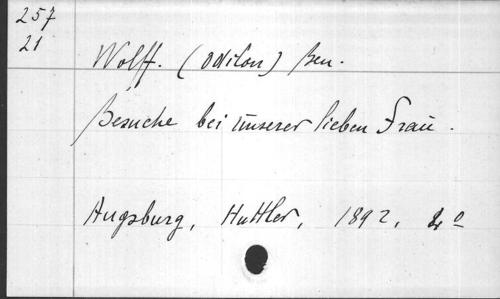 257
21
Wolff. (Odilon) Ben.
Besuche bei unserer lieben Frau.
Augsburg, Huttler, 1892,